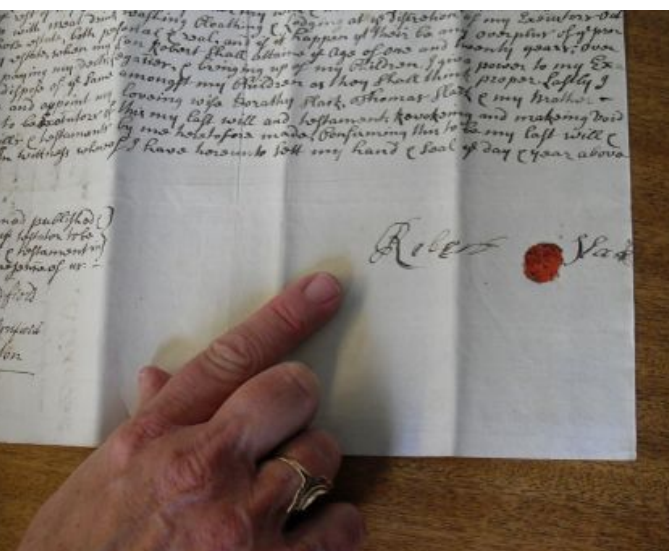 with meat drink washing Cloathing & Lodging at ye discretion of my Executors
estate, both personal & real, and if it happen yt their be any overplus of
estate, when my son Robert shall attaine ye age of one and twenty years, over
paying my debts, legacies & bringing up of my Children, I give power to my Ex-
dispose of ye same amongst my Children as they shall think proper. Lastly I
and appoint my loveing wife Dorothy Slack, Thomas Slack & my Mother
to be Executors of this my last will and testament, Revokeing and making void
& testaments by me heretofore made, Confirming this to be my last will &
In wittness whereof I have hereunto sett my hand & Seal ye day & year above
published
testator to be
& testament in
presence of us
Robert Slack